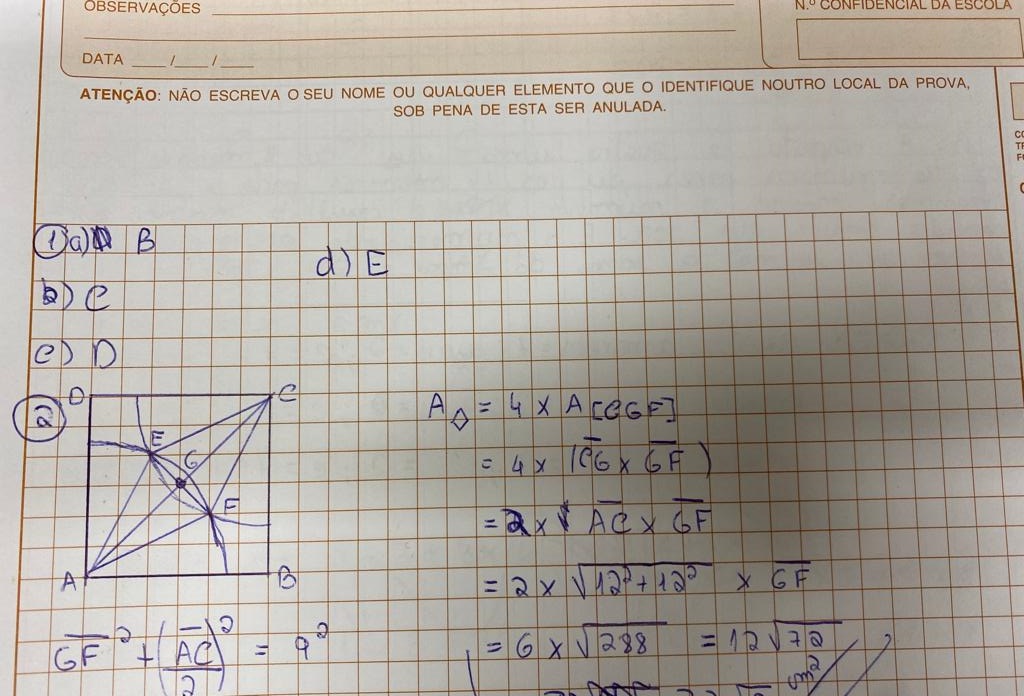 OBSERVAÇÕES
N.º CONFIDENCIAL DA ESCOLA
DATA ____ /____ /____
ATENÇÃO: NÃO ESCREVA O SEU NOME OU QUALQUER ELEMENTO QUE O IDENTIFIQUE NOUTRO LOCAL DA PROVA,
SOB PENA DE ESTA SER ANULADA.
1 a) B
d) E
b) C
c) D
2
D C
E
G
F
A B
A◇ = 4 × A[CGF]
= 4 × (C̅G̅ × G̅F̅)
= 2 × A̅C̅ × G̅F̅
= 2 × √(12² + 12²) × G̅F̅
G̅F̅² + (A̅C̅/2)² = 9²
= 6 × √288 = 12√72